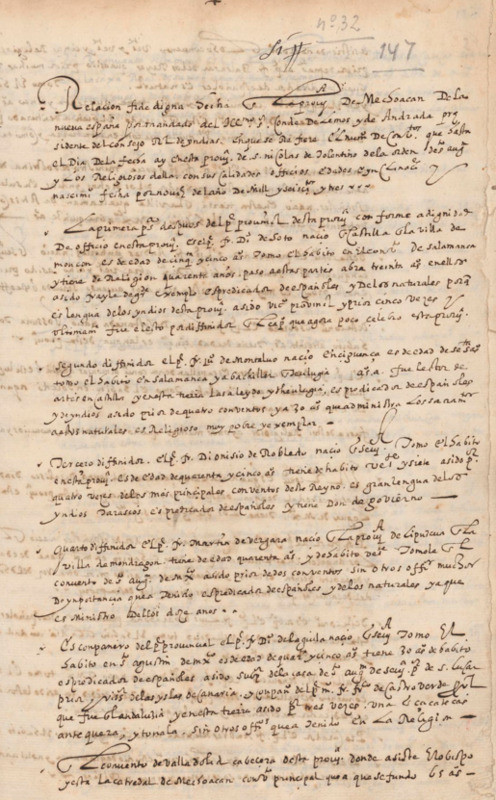 nº 32
147
Relacion fidedigna hecha En la prouª De Mechoacan De la
nueva españa por mandado del Exmº sr Conde De Lemos y de Andrada pre
sidente del consejo Rl de yndias. En que se Refiere El numº De conbtos que hasta
el Dia De la fecha ay En esta prouª de s. nicolas de tolentino de la orden de s. augn
y Los Religiosos della con sus calidades officios. Edades
nacimº fecha por del año De mill y seiscis y tres
La primera psª despues del pe prouinçial desta prouª conforme a dignidad
Da officio en esta prouª Es el pe fr. Dº de Soto nacio En Castilla En la villa de
monçon. es de edad de cinqtª y cinco as. Tomo El habito en El conbtº De salamanca
y tiene de Religion quarenta años. paso a estas partes abra treinta as en ellos
a sido frayle de gran Exemplo es predicador de españoles y De los naturales porq
es lengua de los yndios desta prouª. a sido vicº prouinçial y prior cinco vezes y
ultimamte fue electo por diffinidor En El capº que agora poco celebro esta prouª.
Segundo diffinidor el pe fr. de Montaluo nacio En cigüença es de edad de setª as
tomo el habito en Salamanca ya bachiller Theulugia fue lector de
artes en castilla y en esta tierra las a leydo y theulugia. es predicador de españoles
y de yndios a sido prior de quatro conventos. ya 30 as que administra Los sacramtos
a estos naturales. es Religioso muy pobre y exemplar —
Tercero diffinidor. El pe fr Dionisio de Robledo nacio En seuª Tomo El habito
en esta prouª. Es De edad de quarenta y cinco as tiene de habito veinte y siete a sido pr
quatro vezes. de los mas principales conventos deste Reyno. es gran lengua de los
yndios Tarascos es predicador de españoles y tiene Don de govierno —
Quarto diffinidor El pe fr Martin de vergara nacio En La prouª de Lipuzcua En La
villa de mondragon. tiene de edad quarenta as. y de habito vete Tomole En El
convento de s. augn de Mexº a sido prior de dos conventos sin otros offos muchos
De ynportancia que a Tenido. es predicador de españoles y de los naturales ya que
es Ministro Dellos doze años . .
Es conpañero del pe provincial el pe fr. Dº de laguila nacio En seuª. Tomo El
habito en s agustin de mexº es de edad de quarª y cinco as tiene 30 as de habito
es predicador de españoles a sido de la casa de s. augn de seuª pr de s. Lucar
prior, y de las yslas de Canaria. y conpanº del pe m. fr. de Castro Verde
que fue En andaluzia y en esta tierra a sido pr tres vezes, una En çacatecas
ante quera, y tonala. sin otros offos que a Tenido En La Religion —
El convento de valladolid cabecera desta prouª. donde asiste El obispo
y esta la catedral de Mechoacan convtº principal a que se fundo 65 as—